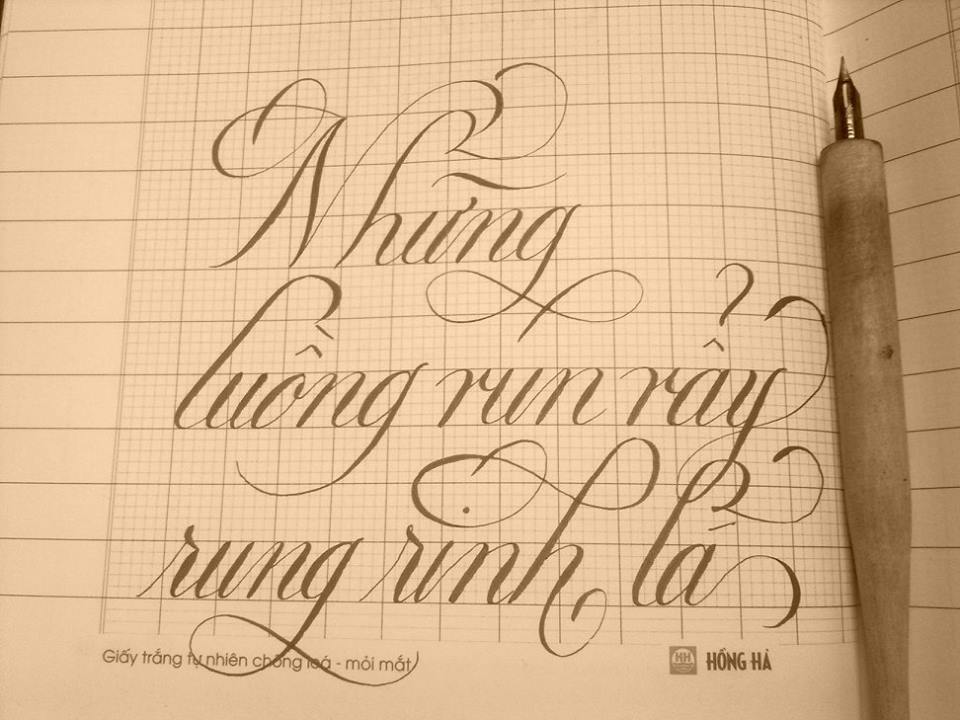 Những
luồng run rẩy
rung rinh lá
Giấy trắng tự nhiên chống loá - mỏi mắt
HH HỒNG HÀ